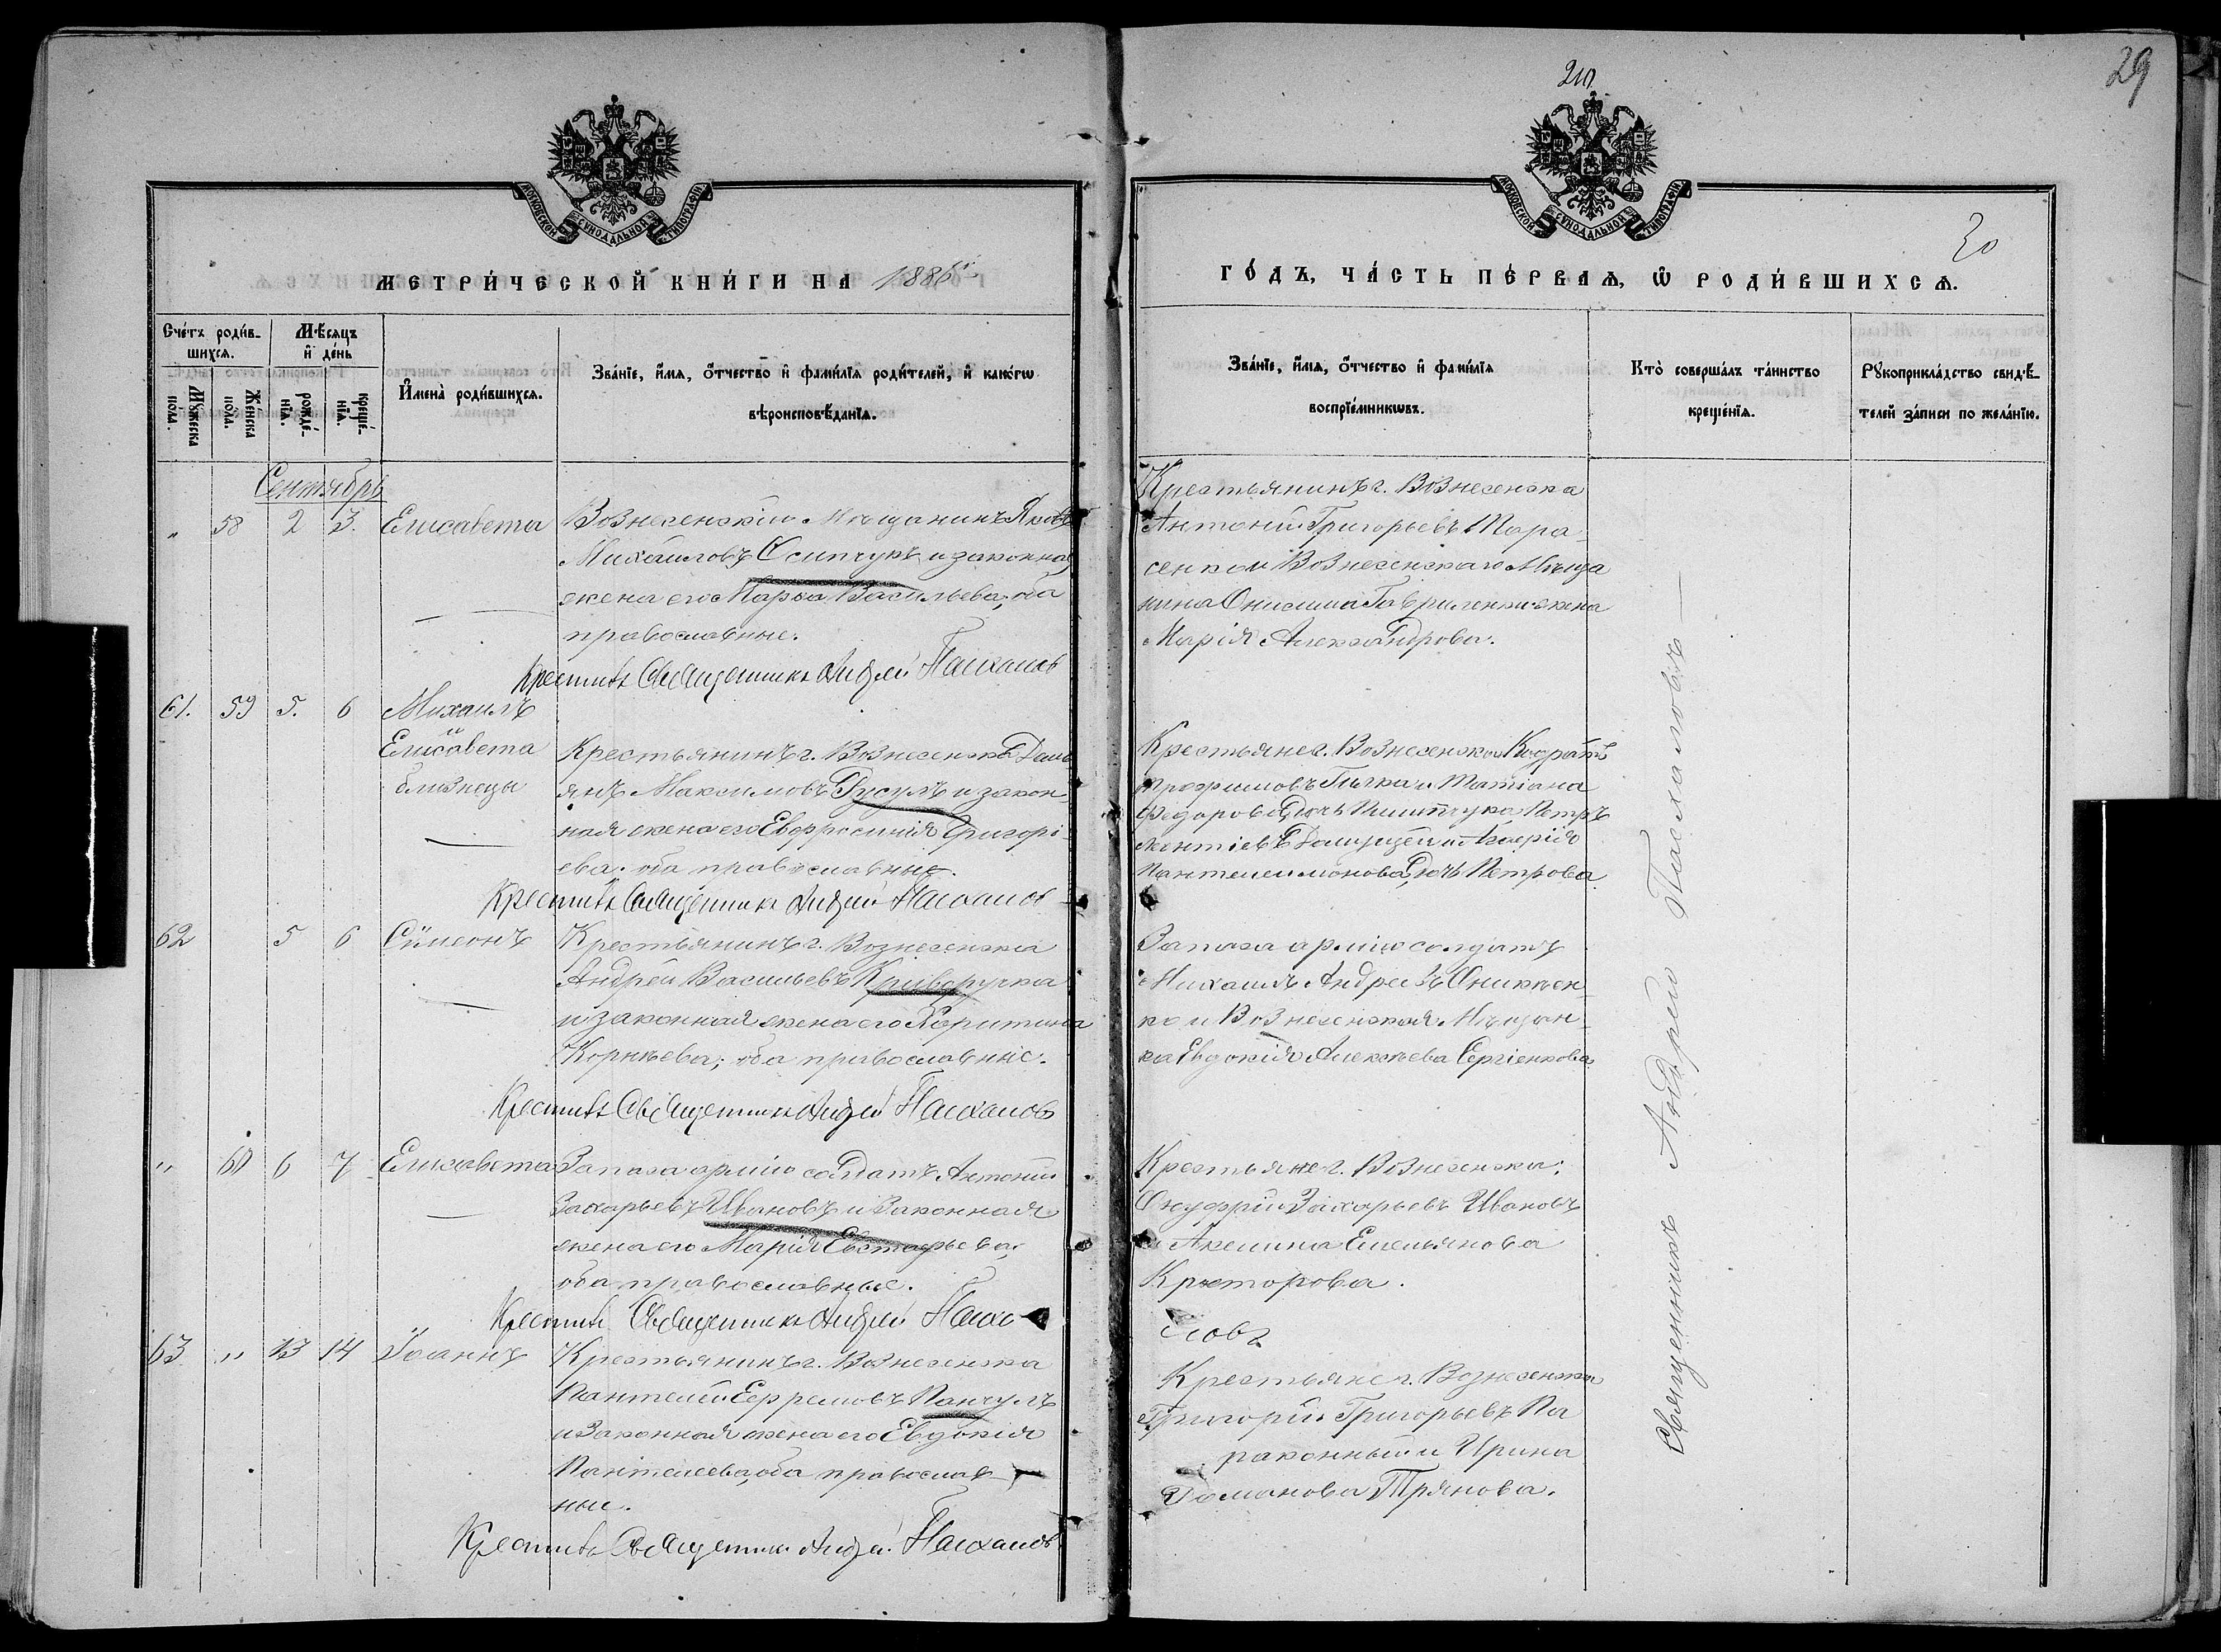 29
210
МОСКОВСКОЙ СѴНОДАЛЬНОЙ ТИПОГРАФІИ
МОСКОВСКОЙ СѴНОДАЛЬНОЙ ТИПОГРАФІИ
30
МЕТРИ́ЧЕСКОЙ КНИ́ГИ НА 1886й
ГО́ДЪ, ЧА́СТЬ ПЕ́РВАѦ, Ѡ РОДИ́ВШИХСѦ.
Сче́тъ роди́в-
шихсѧ.
Мѣ́сѧцъ
и҆ де́нь
Мꙋ́жеска
пола.
Же́нска
пола.
рожде́-
нїѧ.
креще́-
нїѧ.
И҆мена̀ роди́вшихсѧ.
Зва́нїе, и҆́мѧ, ѻ҆́тчество и҆ фами́лїѧ роди́телей, и҆ како́гѡ
вѣроисповѣ́данїѧ.
Зва́нїе, и҆́мѧ, ѻ҆́тчество и҆ фами́лїѧ
воспрїе́мникѡвъ.
Кто̀ соверша́лъ та́инство
креще́нїѧ.
Рꙋкоприкла́дство свидѣ́-
телей за́писи по жела́нїю.
Сентябрь
„ 58 2 3. Елисавета
Вознесенскій Мѣщанинъ Яковъ
Михаиловъ Осипчукъ и законная
жена его Марѳа Васильева, оба
православные.
Крестилъ Священникъ Андрей Пасхаловъ
Крестьянинъ г. Вознесенска
Антоній Григорьевъ Тара-
сенко и Вознесенскаго Мѣща
нина Онисима Гавриленки жена
Марія Александрова.
61. 59 5. 6 Михаилъ
и
Елисавета
близнецы
Крестьянинъ г. Вознесенска Дамі
янъ Максимовъ Гусулъ и закон-
ная жена его Евфросинія Григорі-
ева; оба православные.
Крестилъ Священникъ Андрей Пасхаловъ
Крестьяне г. Вознесенска Кодратъ
Трофимовъ и Татіана
Федорова дочь Петръ
Пантелеимонова, дочь Петрова
62 5 6 Сѷмеонъ
Крестьянинъ г. Вознесенска
Андрей Васильевъ Криворучка
и законная жена его Харитина
Корнѣева; оба православные.
Крестилъ Священникъ Андрей Пасхаловъ
Запаса арміи солдатъ
Михаилъ Андреевъ Оникѣен-
ко и Вознесенская Мѣщан-
ка Евдокія Алексѣева Сергіенкова
„ 60 6 7 Елисавета
Запаса арміи солдатъ Антоній
Захарьевъ Ивановъ и Законная
жена его Марія Евстафьева,
оба православные.
Крестилъ Священникъ Андрей Пасха-
ловъ
Крестьяне г. Вознесенска:
Онуфрій Захарьевъ Ивановъ
и Акелина Емельянова
63 „ 13 14 Іоаннъ
Крестьянинъ г. Вознесенска
Пантелей Ефремовъ Панчулъ
и Законная жена его Евдокія
Пантелеева, оба православ-
ные.
Крестилъ Священникъ Андрей Пасхаловъ
Крестьяне г. Вознесенска
Григорій Григорьевъ Па
раконный и Ирина
Романова Трянова.
Священникъ Андрей Пасхаловъ